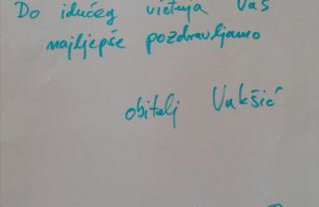 Do idućeg viđenja Vas
najljepše pozdravljamo
obitelj Vukšić